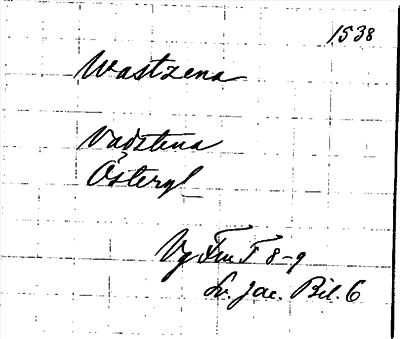 1538
Wastzena
Vadstena
Östergl
Vg Fm F 8-9
Lr. Jac. Bil. 6